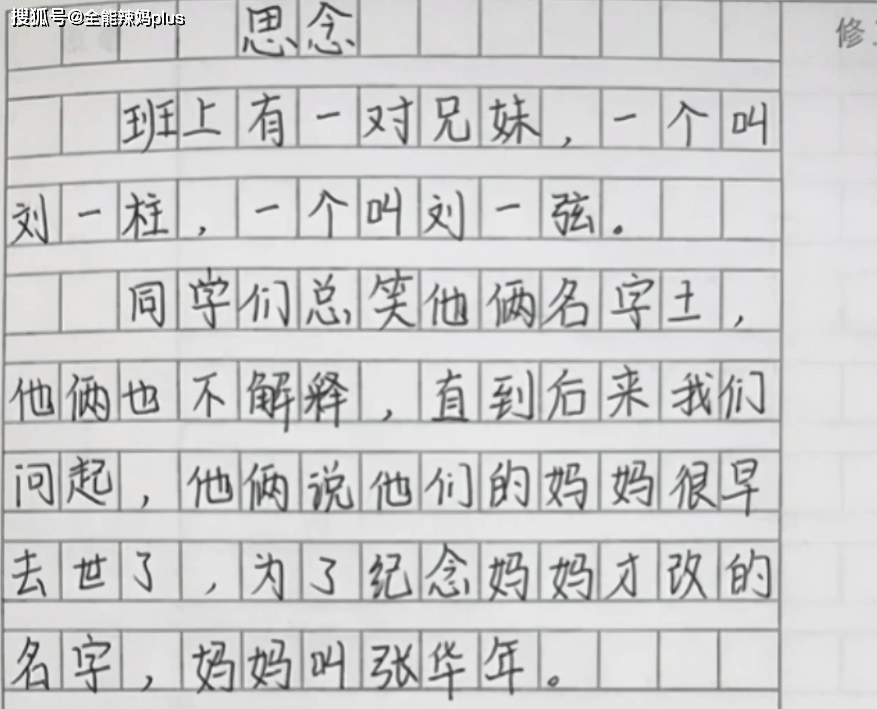 搜狐号@全能辣妈plus
思念
修
班上有一对兄妹，一个叫
刘一柱，一个叫刘一弦。
同学们总笑他俩名字土，
他俩也不解释，直到后来我们
问起，他俩说他们的妈妈很早
去世了，为了纪念妈妈才改的
名字，妈妈叫张华年。